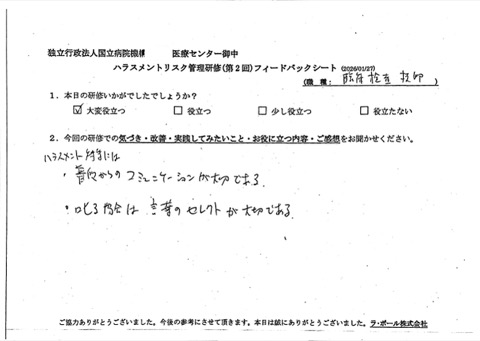 独立行政法人国立病院機構　医療センター御中
ハラスメントリスク管理研修(第2回)フィードバックシート (2026/01/27)
(職種: 臨床検査技師 )
1．本日の研修いかがでしたでしょうか？
☑ 大変役立つ　□ 役立つ　□ 少し役立つ　□ 役立たない
2．今回の研修での気づき・改善・実践してみたいこと・お役に立つ内容・ご感想をお聞かせください。
ハラスメント防止には
・普段からのコミュニケーションが大切である.
・叱る場合は言葉のセレクトが大切である.
ご協力ありがとうございました。今後の参考にさせて頂きます。本日は誠にありがとうございました。ラ・ポール株式会社